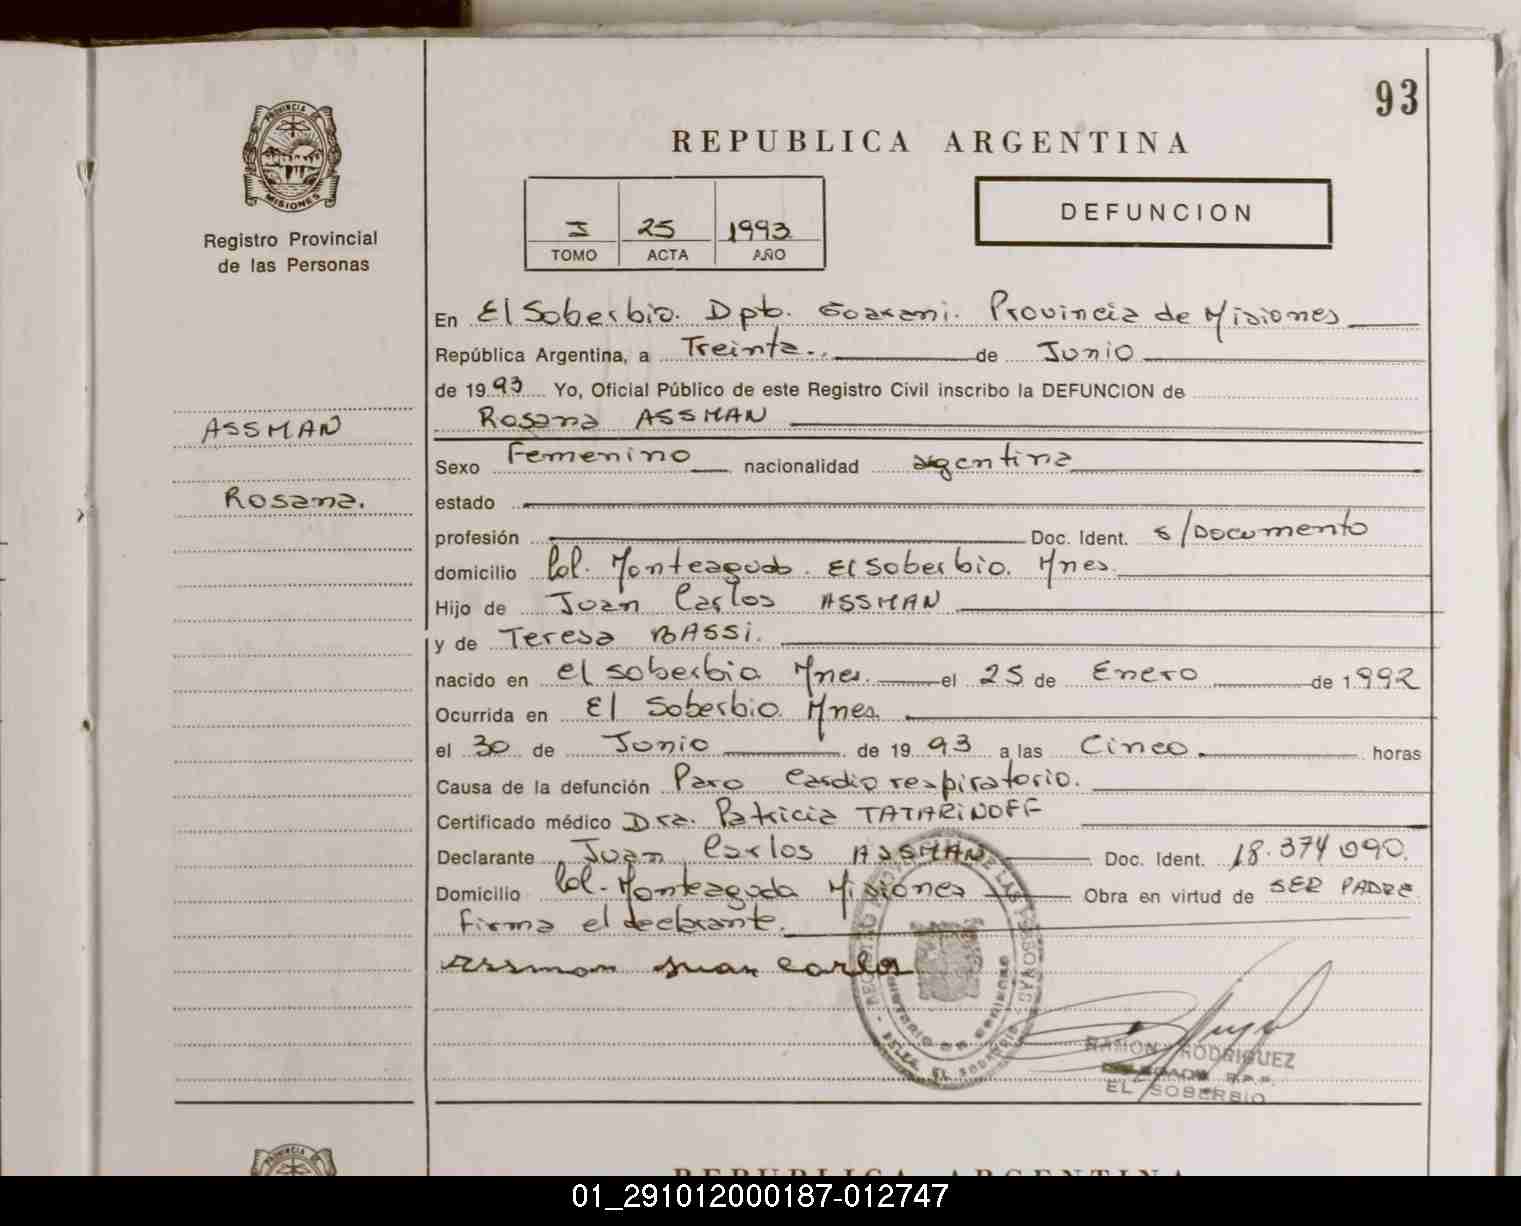 93
PROVINCIA DE
MISIONES
Registro Provincial
de las Personas
REPUBLICA ARGENTINA
I 25 1993
TOMO ACTA AÑO
DEFUNCION
ASSMAN
Rosana.
En El Soberbio. Dpto. Guarani. Provincia de Misiones
República Argentina, a Treinta. de Junio
de 1993 Yo, Oficial Público de este Registro Civil inscribo la DEFUNCION de
Rosana ASSMAN
Sexo Femenino nacionalidad argentina
estado
profesión Doc. Ident. s/Documento
domicilio Col. Monteagudo. El Soberbio. Mnes.
Hijo de Juan Carlos ASSMAN
y de Teresa BASSI.
nacido en el soberbio Mnes. el 25 de Enero de 1992
Ocurrida en El Soberbio Mnes.
el 30 de Junio de 1993 a las Cinco. horas
Causa de la defunción Paro Cardio respiratorio.
Certificado médico Dra. Patricia TATARINOFF
Declarante Juan Carlos ASSMAN Doc. Ident. 18.374 090.
Domicilio Col. Monteagudo Misiones Obra en virtud de SER PADRE.
firma el declarante.
assman juan carlos
RAMON RODRIGUEZ
EL SOBERBIO
REPUBLICA ARGENTINA
01_291012000187-012747